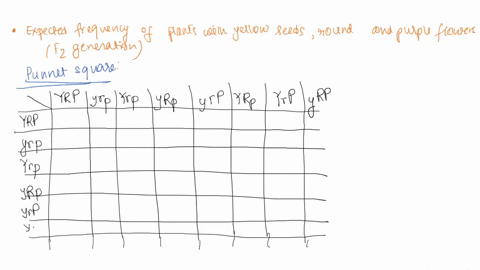 • Expected frequency of plants with yellow seeds, round and purple flowers
(F2 generation)
Punnet square:
YRP yrp Yrp yRp yrP YRp YrP yRP
YRP
yrp
Yrp
yRp
yrP
Y